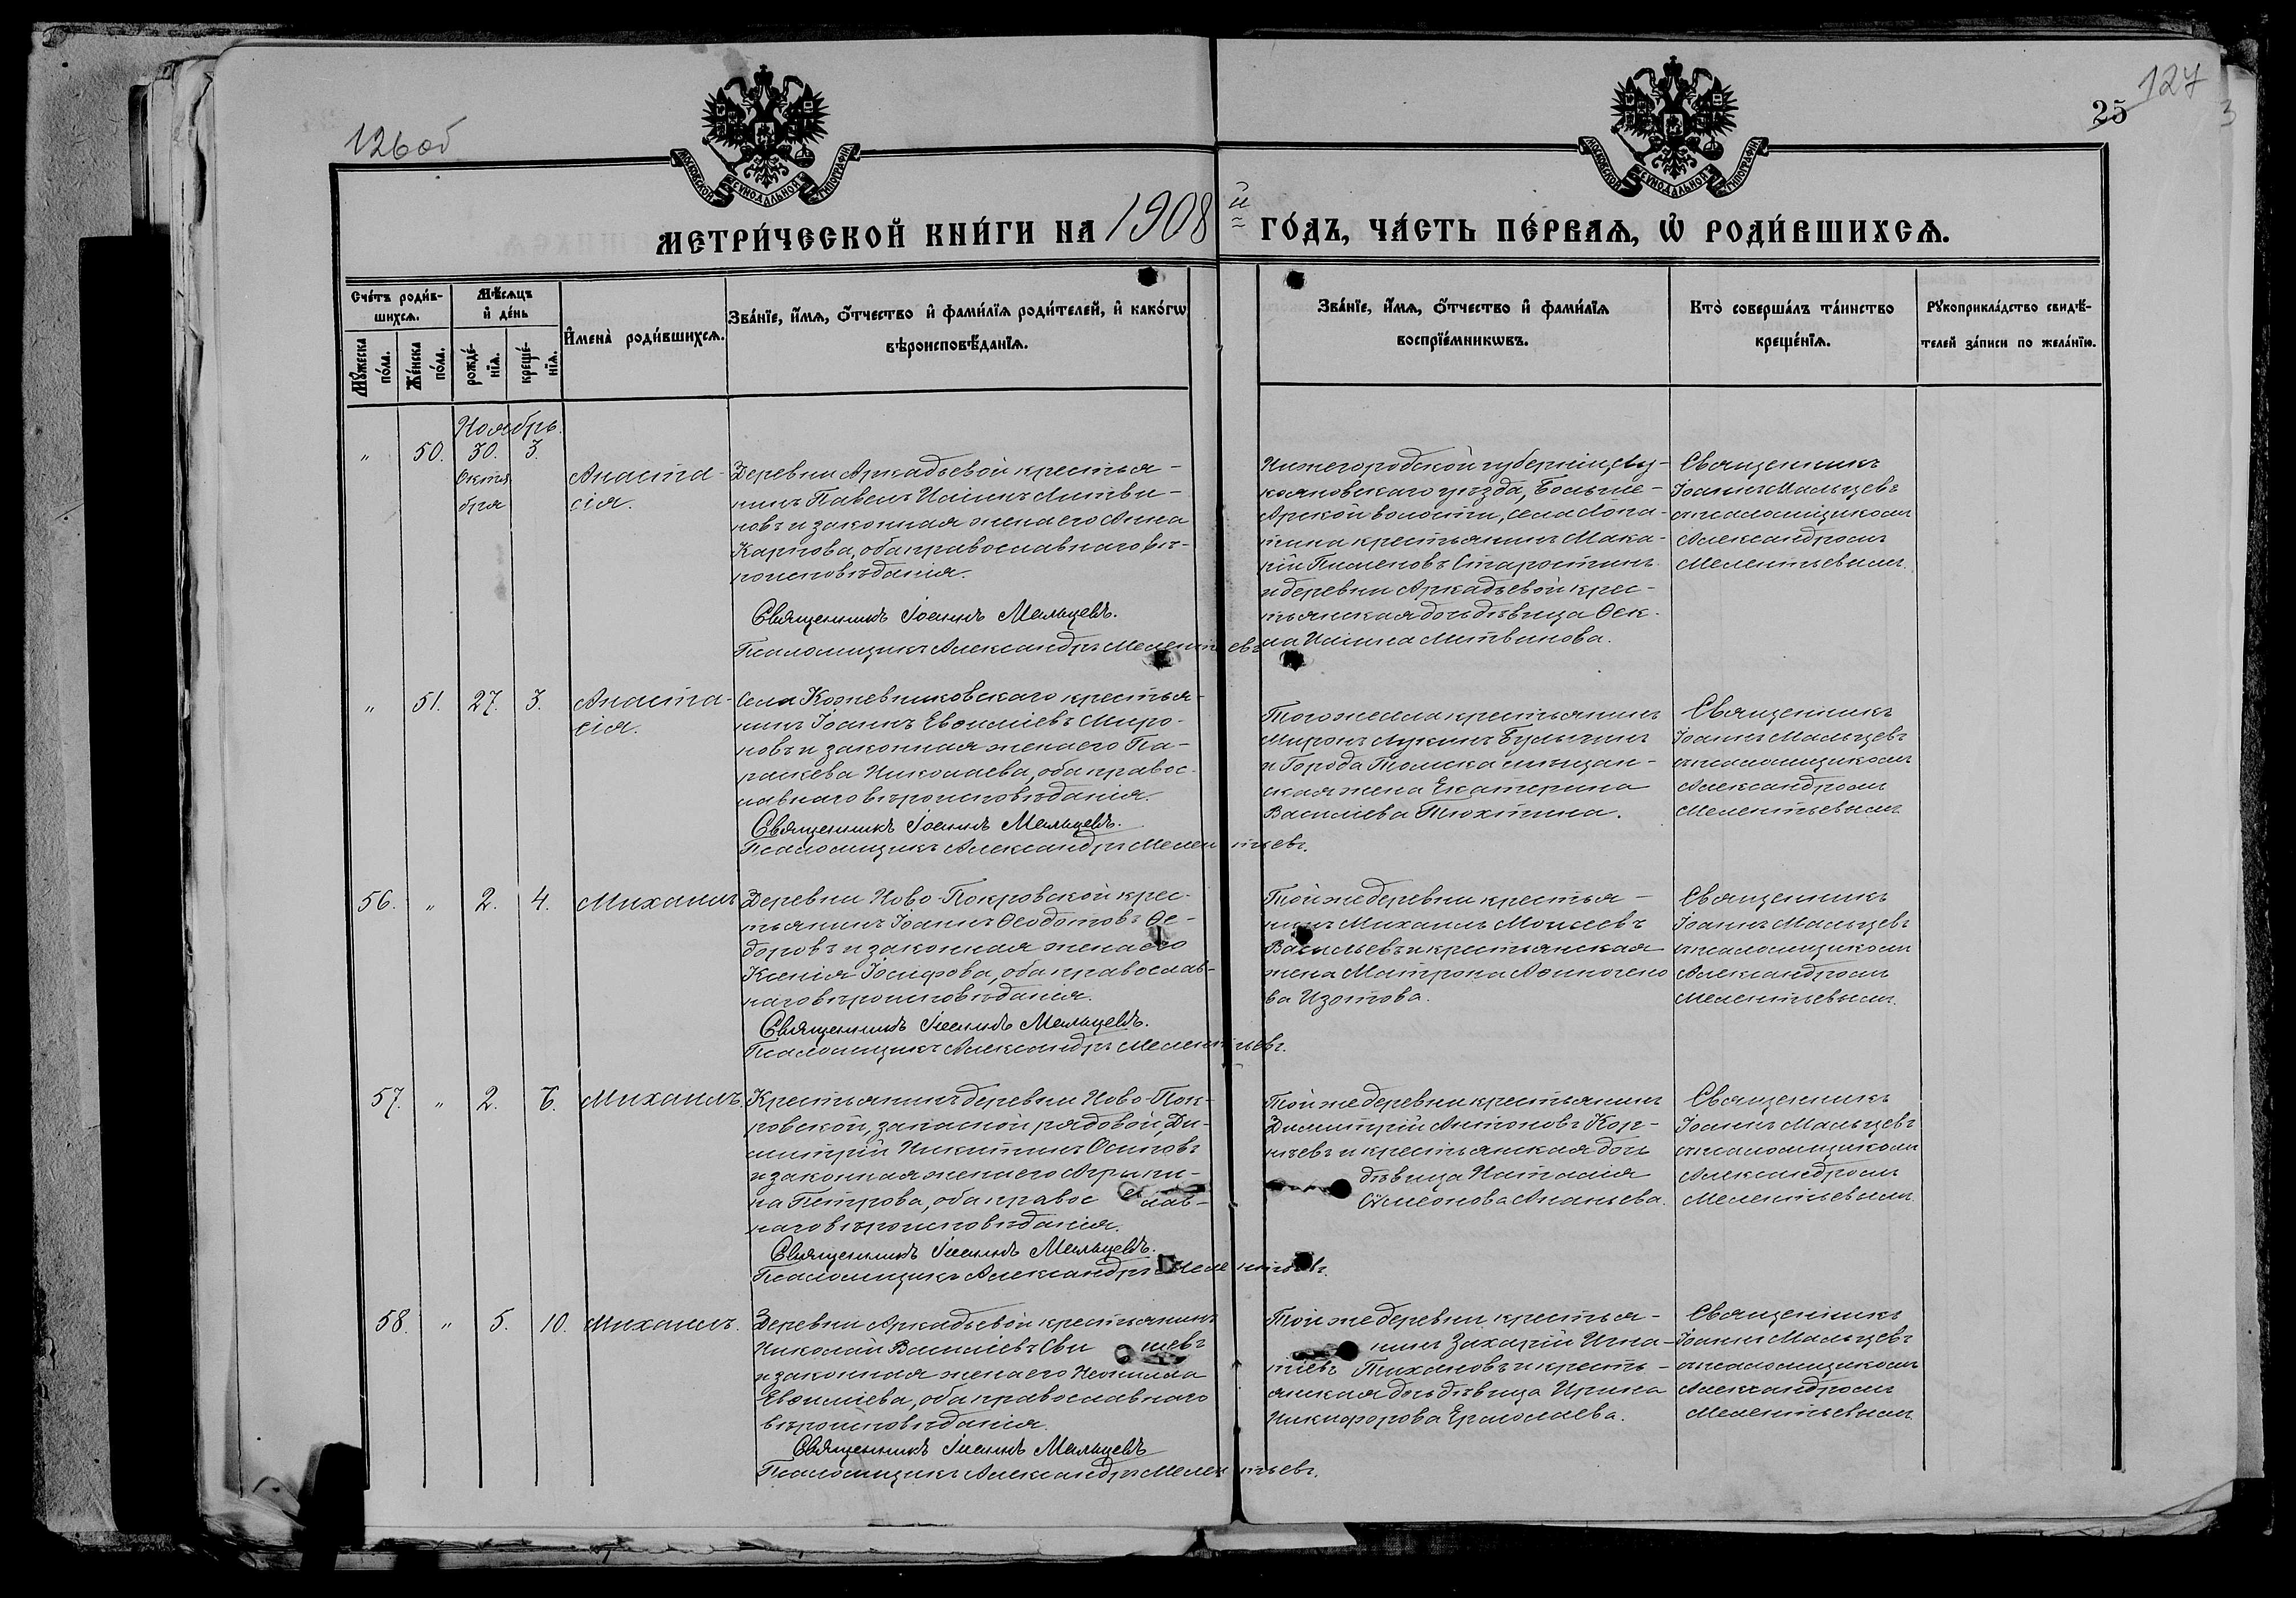 126 об
127
25
3
МОСКОВСКОЙ СѴНОДАЛЬНОЙ ТИПОГРАФІИ
МОСКОВСКОЙ СѴНОДАЛЬНОЙ ТИПОГРАФІИ
МЕТРИ́ЧЕСКОЙ КНИ́ГИ НА 1908й ГО́ДЪ, ЧА́СТЬ ПЕ́РВАѦ, Ѡ҆ РОДИ́ВШИХСѦ.
Сче́тъ роди́в-
шихсѧ.
Мꙋ́жеска по́ла.
Же́нска по́ла.
Мѣ́сѧцъ
и҆ де́нь
рожде́-
нїѧ.
креще́-
нїѧ.
И҆мена̀ роди́вшихсѧ.
Зва́нїе, и҆́мѧ, ѻ҆́тчество и҆ фами́лїѧ роди́телей, и҆ како́гѡ
вѣроисповѣ́данїѧ.
Зва́нїе, и҆́мѧ, ѻ҆́тчество и҆ фами́лїѧ
воспрїе́мникѡвъ.
Кто̀ соверша́лъ та́инство
креще́нїѧ.
Рꙋкоприкла́дство свидѣ́-
телей за́писи по жела́нїю.
Ноябрь.
" 50. 30. 3.
Октя
бря
Анаста-
сія.
Деревни Аркадьевой крестья-
нинъ Павелъ Иліинъ Литви-
новъ и законная жена его Анна
Карпова, оба православнаго вѣ-
роисповѣданія.
Священникъ Іоаннъ Мальцевъ.
Псаломщикъ Александръ Мелентьевъ
Нижегородской губерніи, Лу-
кояновскаго уѣзда, Больше-
Арской волости, села Лопа-
тина крестьянинъ Мака-
рій Пименовъ Старостинъ
и деревни Аркадьевой крес-
тьянская дочь дѣвица Ѳек-
ла Иліина Литвинова.
Священникъ
Іоаннъ Мальцевъ
съ псаломщикомъ
Александромъ
Мелентьевымъ.
" 51. 27. 3.
Анаста-
сія.
Села Кожевниковскаго крестья-
нинъ Іоаннъ Евѳиміевъ Миро-
новъ и законная жена его Па-
раскева Николаева, оба правос-
лавнаго вѣроисповѣданія.
Священникъ Іоаннъ Мальцевъ.
Псаломщикъ Александръ Мелентьевъ.
Того же села крестьянинъ
Миронъ Лукинъ Булыгинъ
и Города Томска мѣщан-
ская жена Екатерина
Василіева Тюхтина.
Священникъ
Іоаннъ Мальцевъ
съ псаломщикомъ
Александромъ
Мелентьевымъ
56. " 2. 4. Михаилъ
Деревни Ново-Покровской крес-
тьянинъ Іоаннъ Ѳеодотовъ Ѳе-
доровъ и законная жена его
Ксенія Іосифова, оба православ-
наго вѣроисповѣданія.
Священникъ Іоаннъ Мальцевъ.
Псаломщикъ Александръ Мелентьевъ.
Той же деревни крестья-
нинъ Михаилъ Моисеевъ
Васильевъ и крестьянская
жена Матрона
ва Изотова.
Священникъ
Іоаннъ Мальцевъ
съ псаломщикомъ
Александромъ
Мелентьевымъ.
57. " 2. 6. Михаилъ.
Крестьянинъ деревни Ново-Пок-
ровской, запасной рядовой, Ди-
митрій Никитинъ Осиповъ
и законная жена его Агрипи-
на Петрова, оба правос лав-
наго вѣроисповѣданія.
Священникъ Іоаннъ Мальцевъ.
Псаломщикъ Александръ Мелентьевъ.
Той же деревни крестьянинъ
Димитрій Антоновъ Кор-
нѣевъ и крестьянская дочь
дѣвица Наталія
Сѵмеонова Ананьева.
Священникъ
Іоаннъ Мальцевъ
съ псаломщикомъ
Александромъ
Мелентьевымъ
58. " 5. 10. Михаилъ.
Деревни Аркадьевой крестьянинъ
Николай Василіевъ
и законная жена его Неонилла
Евѳиміева, оба православнаго
вѣроисповѣданія.
Священникъ Іоаннъ Мальцевъ
Псаломщикъ Александръ Мелентьевъ.
Той же деревни крестья-
нинъ Захарій Игна-
тіевъ Тихановъ и кресть-
янская дочь дѣвица Ирина
Никифорова Ермолаева.
Священникъ
Іоаннъ Мальцевъ
съ псаломщикомъ
Александромъ
Мелентьевымъ